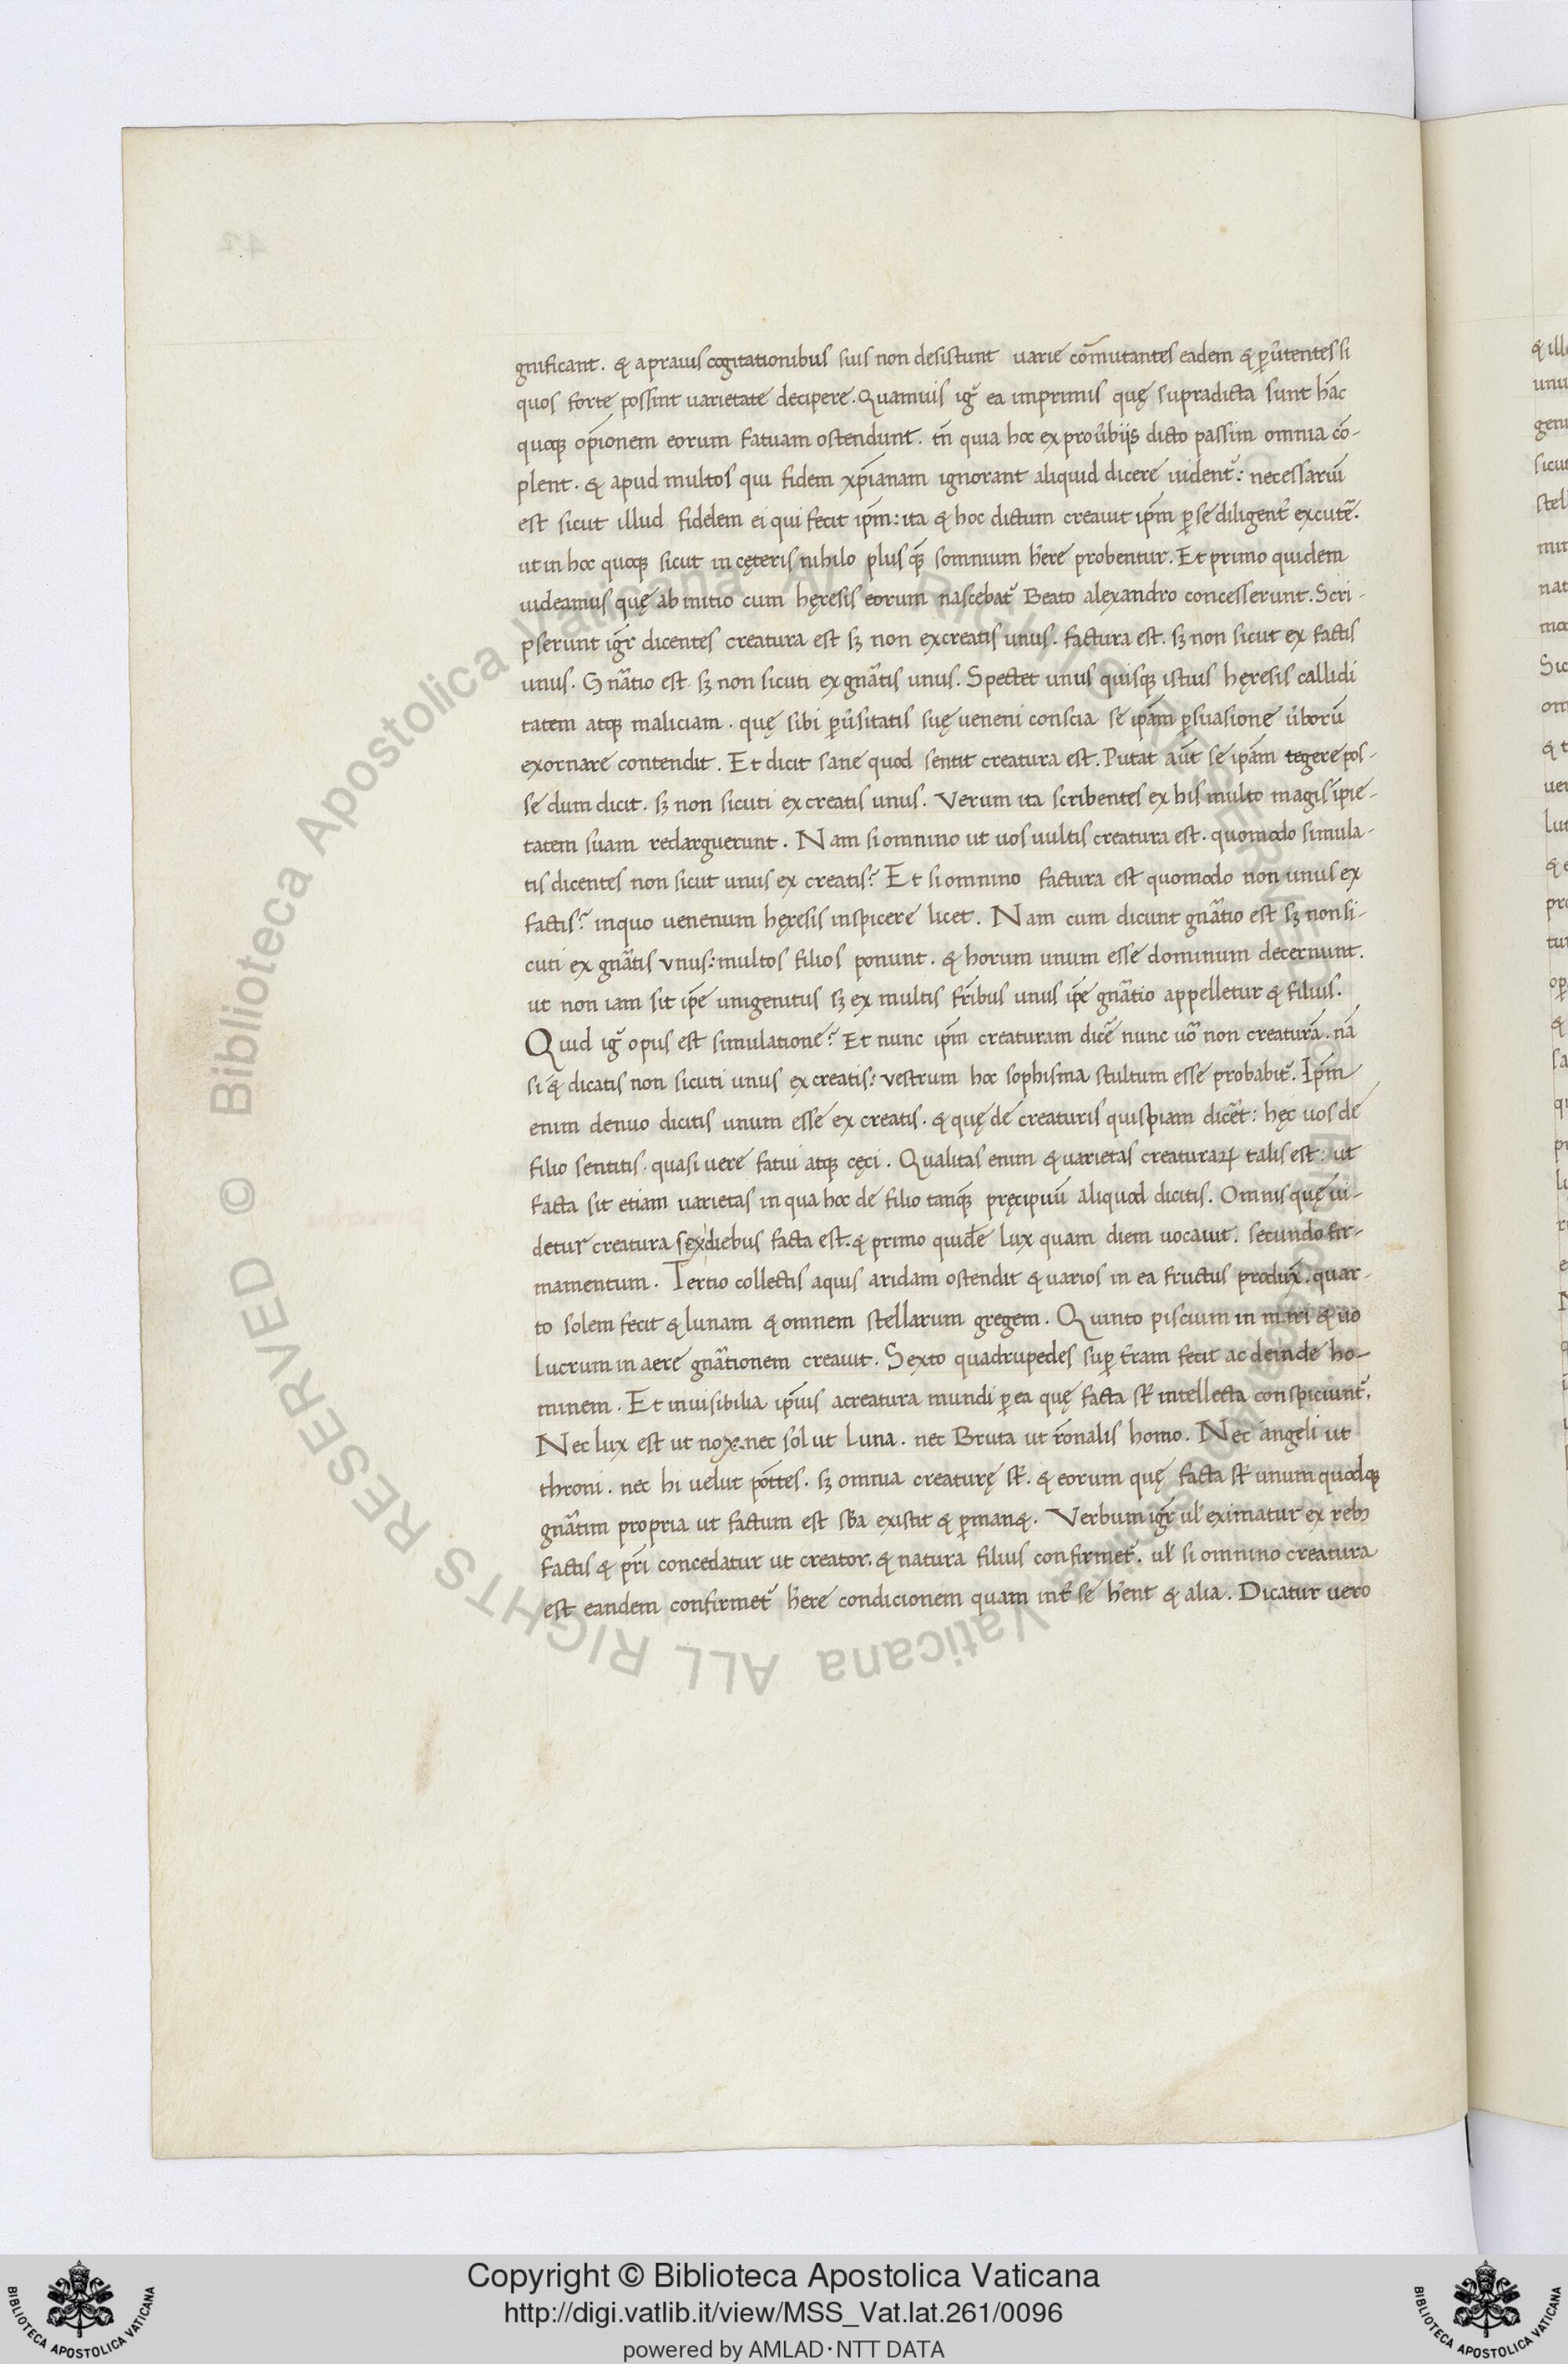 gnificant. & aprauis cogitationibus suis non desistunt uarie com̄utantes eadem & ꝑu̓tentes si
quos forte possint uarietate decipere. Quamuis igr̓ ea imprimis quę supradicta sunt hāc
quoqꝫ opi̅onem eorum fatuam ostendunt. tn̄ quia hoc ex prou̓bijs dicto passim omnia cō-
plent. & apud multos qui fidem xp̅ianam ignorant aliquid dicere uident᷑: necessariū
est sicut illud fidelem ei qui fecit ip̅m: ita & hoc dictum creauit ip̅m ꝑ se diligent̓ excutē.
ut in hoc quoqꝫ sicut in cęteris nihilo plus qꝫ̄ somnium h̓ere probentur. Et primo quidem
uideamus quę ab initio cum hęresis eorum nascebat᷑ Beato alexandro concesserunt. Scri-
pserunt igr̄ dicentes creatura est sꝫ non excreatis unus. factura est. sꝫ non sicut ex factis
unus. Gn̄atio est sꝫ non sicuti ex gn̄atis unus. Spectet unus quisqꝫ istius hęresis callidi
tatem atqꝫ maliciam. quę sibi ꝑu̓sitatis suę ueneni conscia se ip̅am ꝑsuasione u̓borū
exornare contendit. Et dicit sane quod sentit creatura est. Putat aūt se ip̅am tegere pos-
se dum dicit. sꝫ non sicuti ex creatis unus. Verum ita scribentes ex his multo magis īpie-
tatem suam redarguerunt. Nam si omnino ut uos uultis creatura est. quomodo simula-
tis dicentes non sicut unus ex creatis? Et si omnino factura est quomodo non unus ex
factis? inquo uenenum hęresis inspicere licet. Nam cum dicunt gn̄atio est sꝫ non si-
cuti ex gn̄atis vnus: multos filios ponunt. & horum unum esse dominum decernunt.
ut non iam sit ip̅e unigenitus sꝫ ex multis fr̄ibus unus ip̅e gn̄atio appelletur & filius.
Quid igr̓ opus est simulatione? Et nunc ip̅m creaturam dicē nunc uo̓ non creaturā. nā
si & dicatis non sicuti unus ex creatis: vestrum hoc sophisma stultum esse probabit᷑. Ip̅m
enim denuo dicitis unum esse ex creatis. & quę de creaturis quispiam dic̓et: hęc uos de
filio sentitis. quasi uere fatui atqꝫ cęci. Qualitas enim & uarietas creaturaꝝ talis est: ut
facta sit etiam uarietas in qua hoc de filio tanqꝫ̄ pręcipuū aliquod dicitis. Omnis quę ui-
detur creatura sex diebus facta est. & primo quidē lux quam diem uocauit. secundo fir-
mamentum. Tertio collectis aquis aridam ostendit & uarios in ea fructus produx̄. quar-
to solem fecit & lunam & omnem stellarum gregem. Quinto piscium in mari & uo
lucrum in aere gn̄ationem creauit. Sexto quadrupedes suꝑ t̓ram fecit ac deinde ho-
minem. Et inuisibilia ip̅ius acreatura mundi ꝑ ea quę facta st̄ intellecta conspiciunt᷑.
Nec lux est ut nox. nec sol ut luna. nec Bruta ut ro̅nalis homo. Nec angeli ut
throni. nec hi uelut po̅ttes. sꝫ omnia creaturę st̄. & eorum quę facta st̄ unum quodqꝫ
gn̄atim propria ut factum est sb̅a existit & ꝑman&. Verbum igr̄ ul̓ eximatur ex rebꝫ
factis & pr̄i concedatur ut creator. & natura filius confirmet᷑. ul̓ si omnino creatura
est eandem confirmet᷑ h̓ere condicionem quam int̓ se h̓ent & alia. Dicatur uero
Biblioteca Apostolica Vaticana ALL RIGHTS RESERVED ©
Copyright © Biblioteca Apostolica Vaticana
http://digi.vatlib.it/view/MSS_Vat.lat.261/0096
powered by AMLAD·NTT DATA
BIBLIOTECA APOSTOLICA VATICANA
BIBLIOTECA APOSTOLICA VATICANA